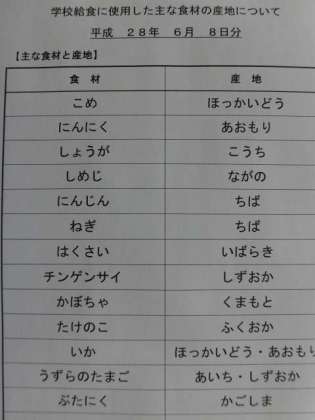 学校給食に使用した主な食材の産地について
平成 28年 6月 8日分
【主な食材と産地】
食 材 産 地
こめ ほっかいどう
にんにく あおもり
しょうが こうち
しめじ ながの
にんじん ちば
ねぎ ちば
はくさい いばらき
チンゲンサイ しずおか
かぼちゃ くまもと
たけのこ ふくおか
いか ほっかいどう・あおもり
うずらのたまご あいち・しずおか
ぶたにく かごしま